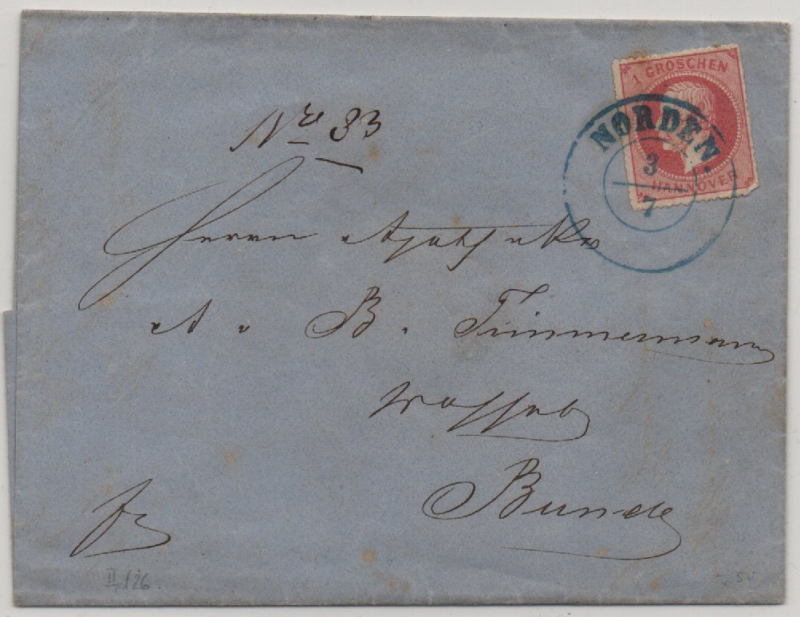 1 GROSCHEN
HANNOVER
NORDEN.
3
7
No 33
Herrn Apotheker
A. B. Timmermann
Bunde
II, 126.